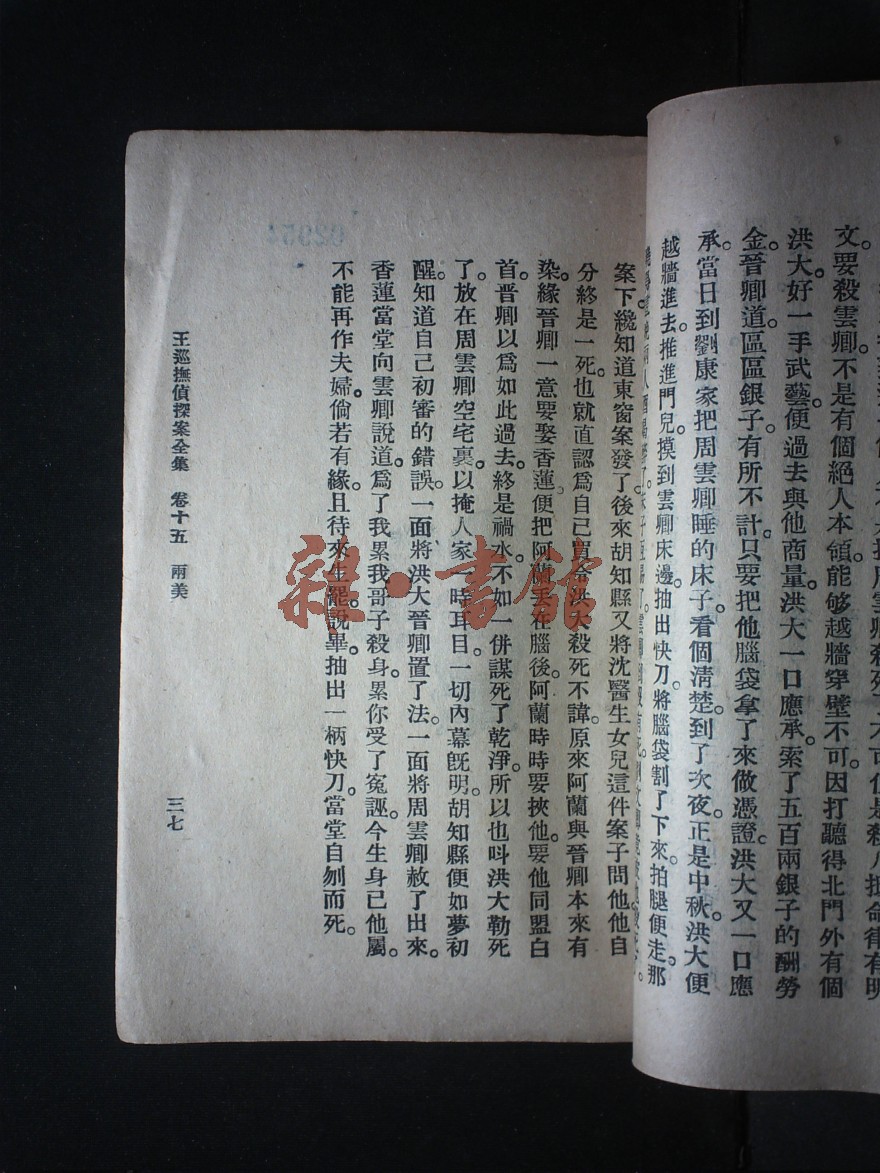 文。要殺雲卿。不是有個絕人本領。能够越牆穿壁不可。因打聽得北門外有個
洪大好一手武藝。便過去與他商量。洪大一口應承。索了五百兩銀子的酬勞
金。晉卿道。區區銀子。有所不計。只要把他腦袋拿了來做憑證。洪大又一口應
承。當日到劉康家把周雲卿睡的床子看個清楚。到了次夜。正是中秋。洪大便
越牆進去。推進門兒。摸到雲卿床邊。抽出快刀。將腦袋割了下來。拍腿便走。那
案下。纔知道東窗案發了。後來胡知縣又將沈醫生女兒這件案子問他。他自
分終是一死。也就直認爲自己買命洪大殺死不諱。原來阿蘭與晉卿本來有
染。緣晉卿一意要娶香蓮。便把阿蘭丟在腦後。阿蘭時時要挾他。要他同盟白
首。晉卿以爲如此過去。終是禍水。不如一併謀死了乾淨。所以也呌洪大勒死
了。放在周雲卿空宅裏。以掩人家一時耳目。一切內幕旣明。胡知縣便如夢初
醒。知道自己初審的錯誤。一面將洪大晉卿置了法。一面將周雲卿赦了出來。
香蓮當堂向雲卿說道。爲了我累我哥子殺身。累你受了冤誣。今生身已他屬。
不能再作夫婦。倘若有緣。且待來生罷。說畢。抽出一柄快刀。當堂自刎而死。
王巡撫偵探案全集 卷十五 兩美
三七
02954
雜·書館